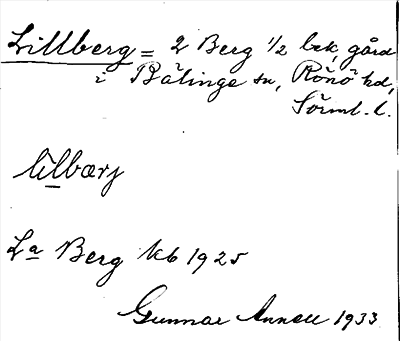 Lillberg = 2 Berg 1/2 bek, gård
i Bälinge sn, Rönö hd,
Sörml. l.
lilbærj
La Berg kb 1925
Gunnar Annell 1933